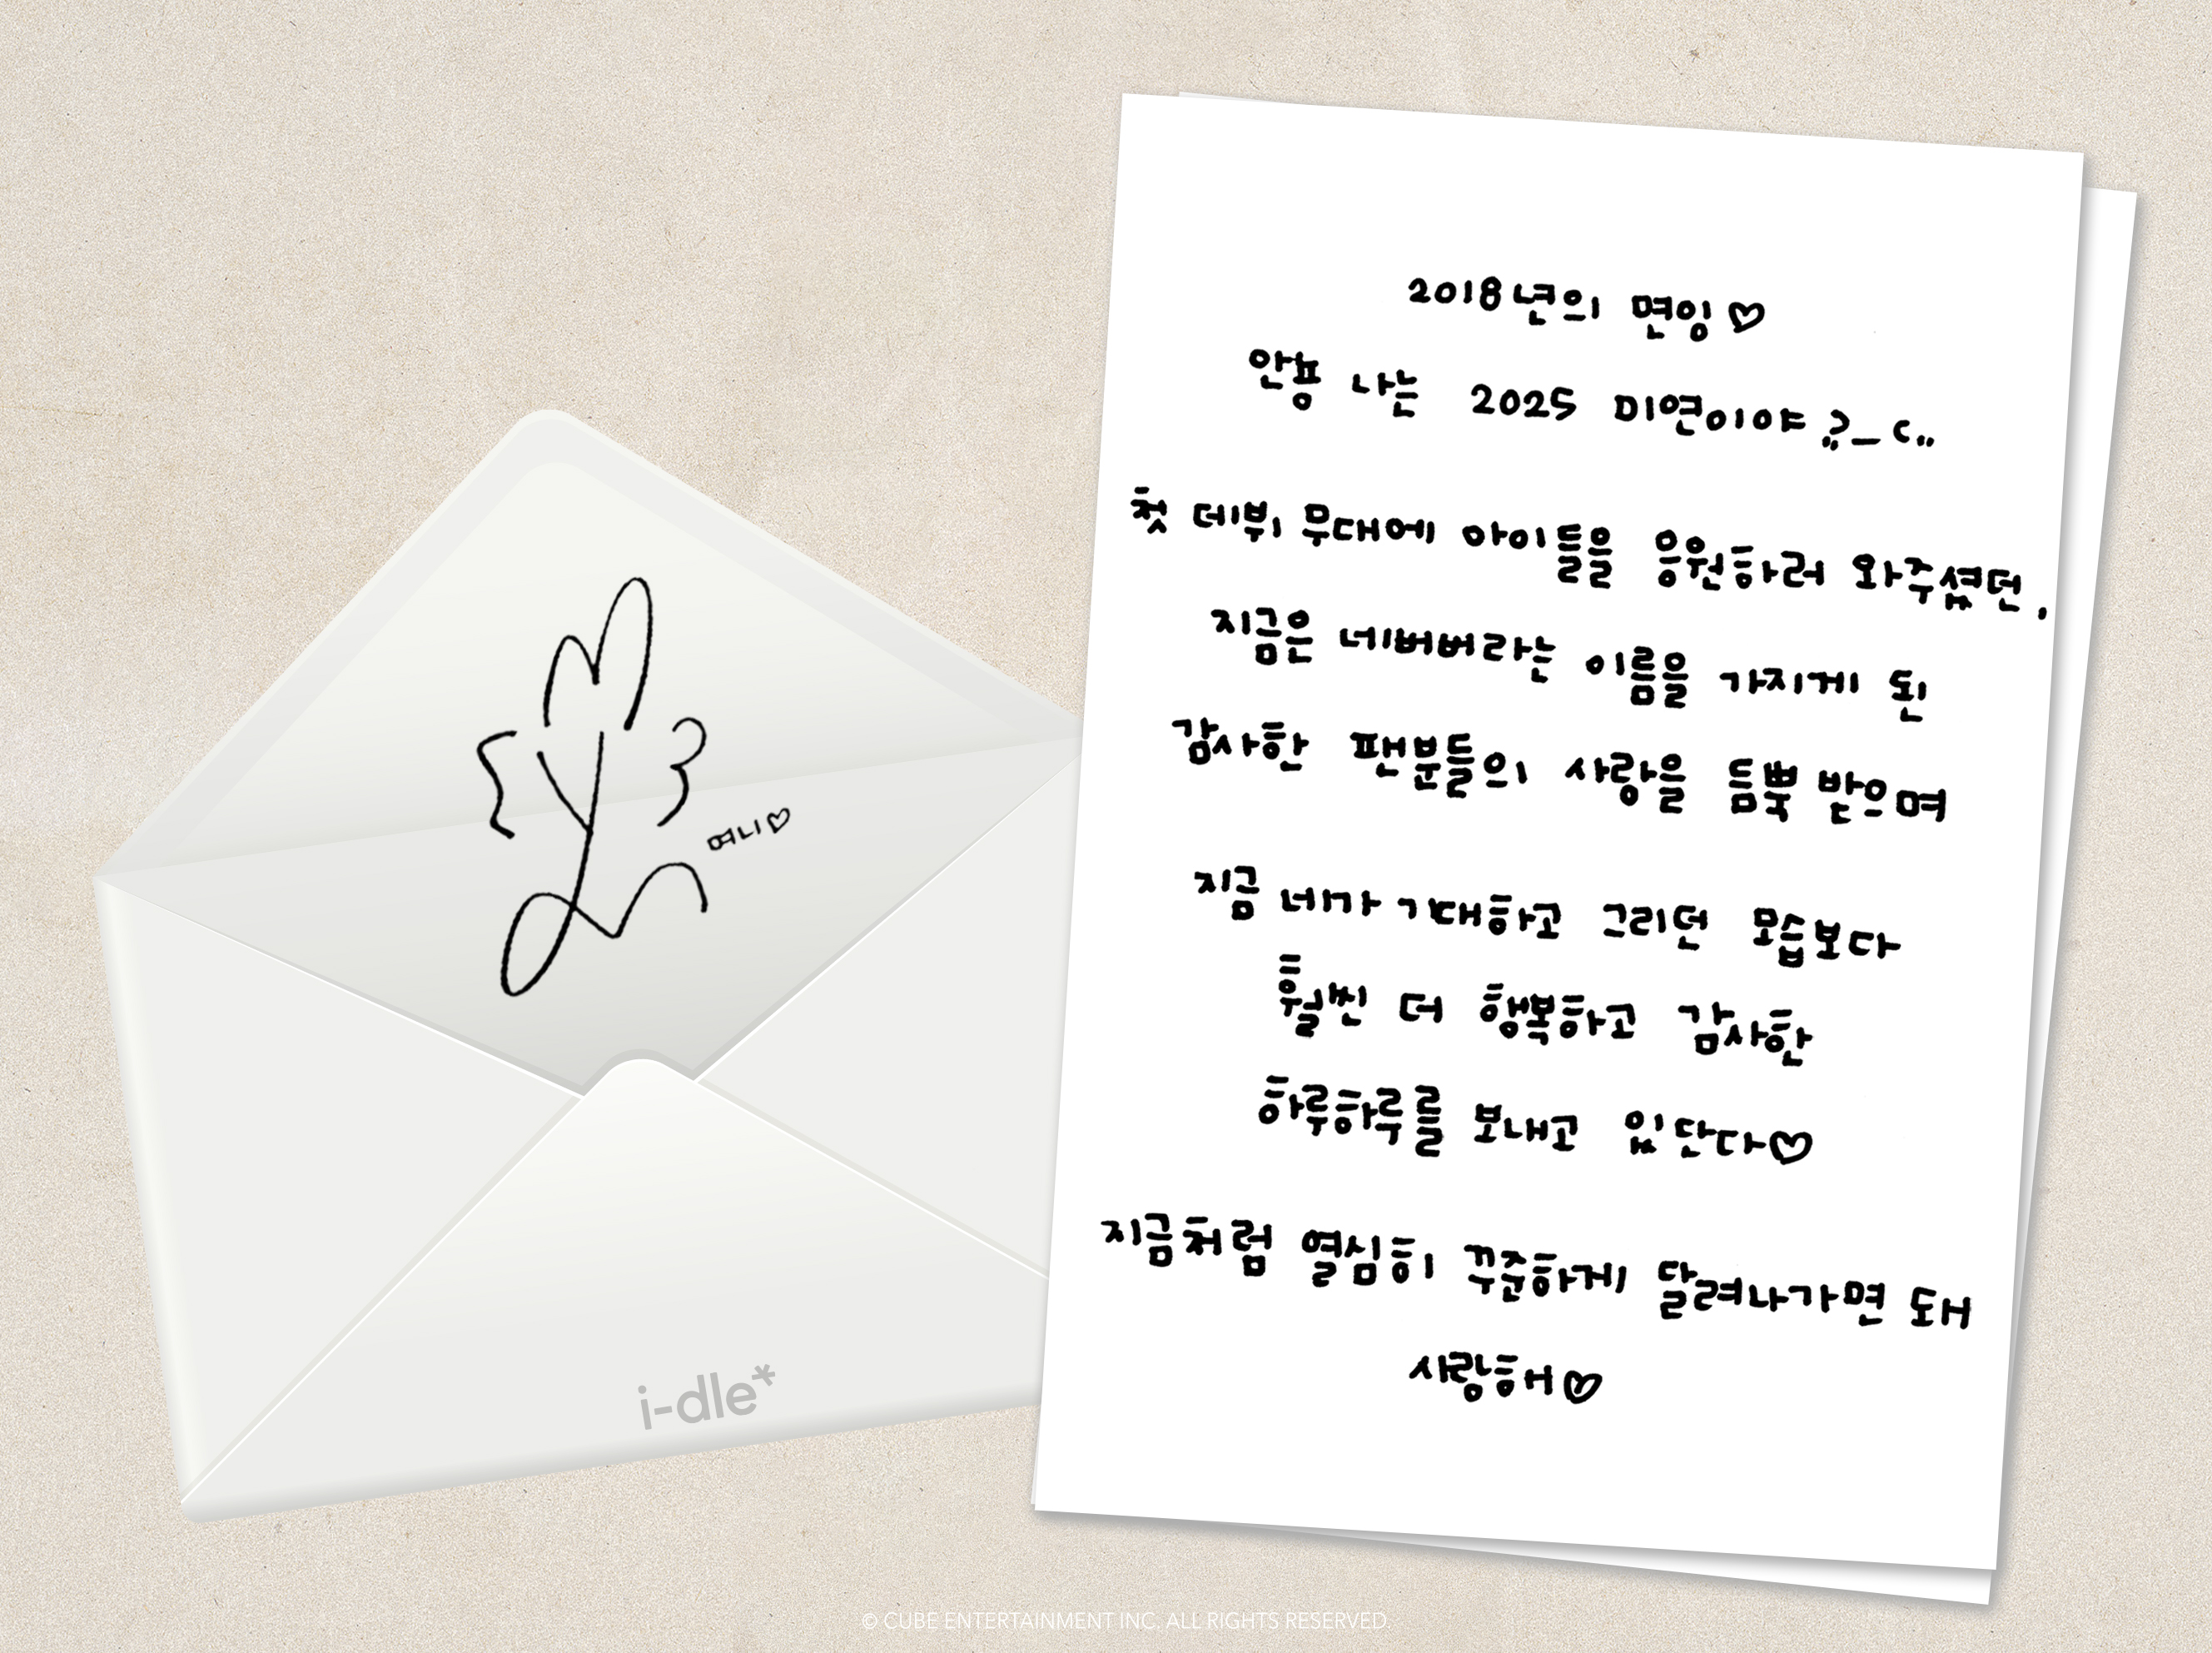 며니♡
i-dle*
2018년의 면잉♡
안뇽 나는 2025 미연이야 ?̤_C..
첫 데뷔 무대에 아이들을 응원하러 와주셨던,
지금은 네버버라는 이름을 가지게 된
감사한 팬분들의 사랑을 듬뿍 받으며
지금 네가 기대하고 그리던 모습보다
훨씬 더 행복하고 감사한
하루하루를 보내고 있단다♡
지금처럼 열심히 꾸준하게 달려나가면 돼
사랑해♡
© CUBE ENTERTAINMENT INC. ALL RIGHTS RESERVED.